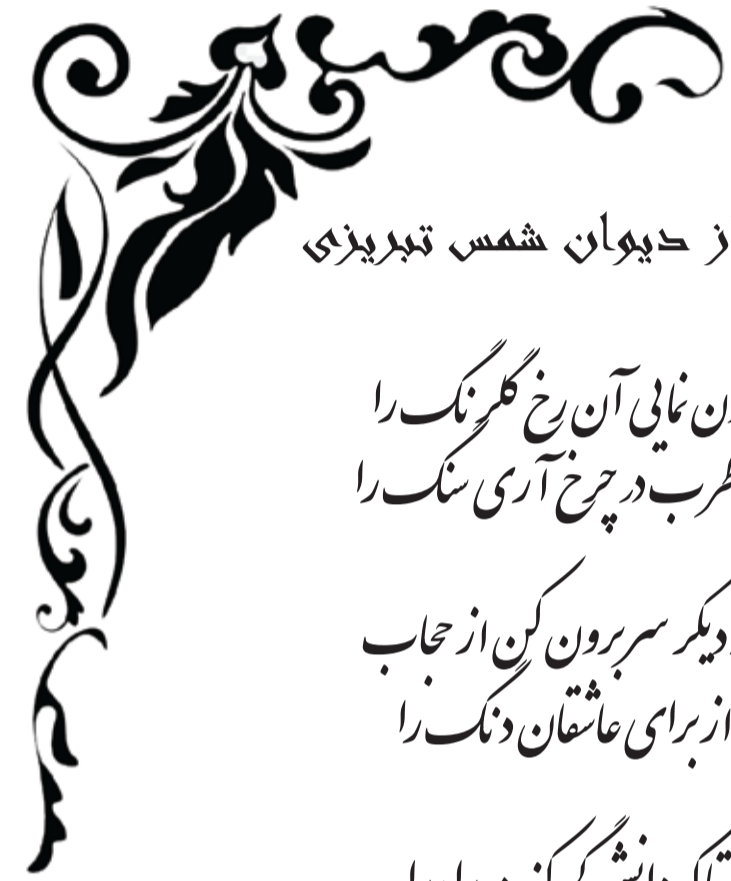 ز دیوان شمس تبریزی
ن نمایی آن رخ گلرنگ را
طرب در چرخ آری سنگ را
دیگر سر برون کن از حجاب
از برای عاشقان دنگ را